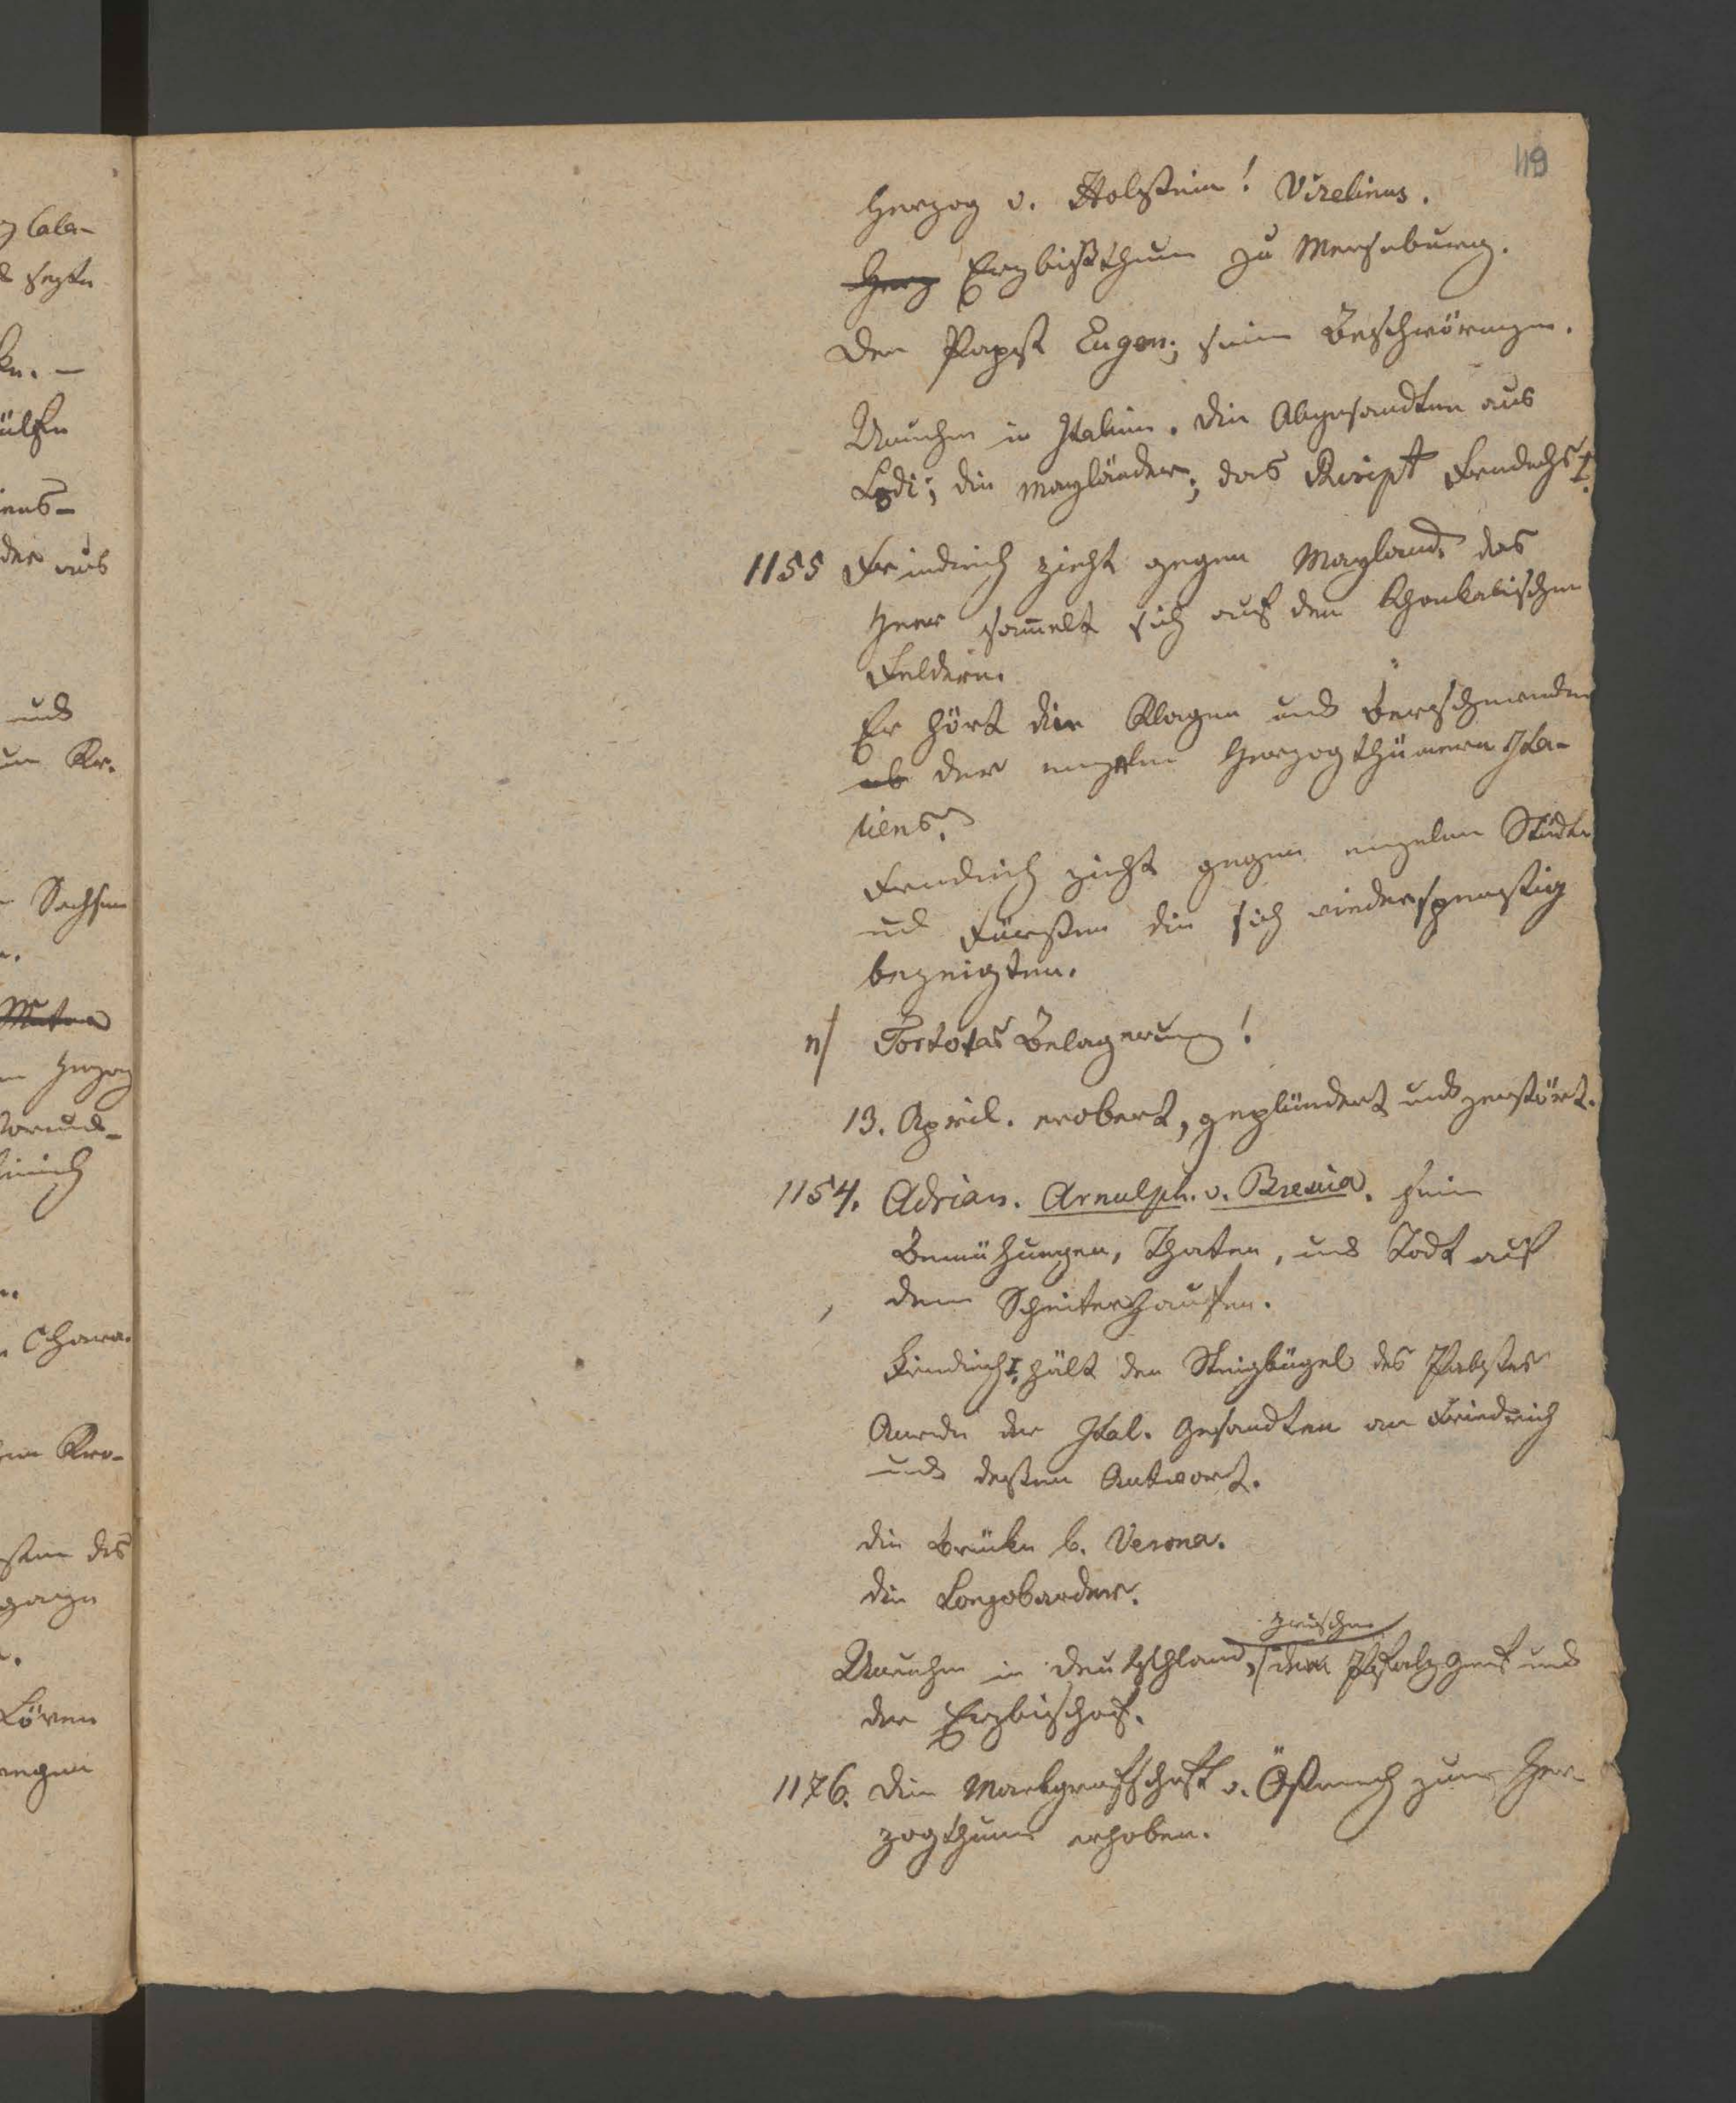 119
Herzog v. Holstein! Vizelinus.
Herz Erzbißthum zu Merseburg.
Der Papst Eugen; seine Beschwörungen.
Unruhen in Italien. Die Abgesandten aus
Lodi; die Mayländer; das Rscipt Friedrichs I.
1155 Friedrich zieht gegen Mayland. das
Heer sam̄elt sich auf den Ronkalischen
Feldern.
Er hört die Klagen und Beschwerden
ab der einzeln Herzogthümern Ita-
liens.
Friedrich zieht gegen einzelne Städte
und Fürsten die sich wiederspenstig
bezeigten.
n/ Tortotas Belagerung!
13. April. erobert, geplündert und zerstört.
1154. Adrian. Arnulph. v. Brescia. seine
Bemühungen, Thaten, und Todt auf
dem Scheiterhaufen.
Friedrich I. hält den Steigbügel des Pabstes
Anrede der Ital. Gesandten an Friedrich
und deßen Antwort.
die Brücke b. Verona.
die Longobarden.
zwischen
Unruhen in Deutschland, dem Pfalzgraf und
der Erzbischof.
1176. Die Markgrafschaft v. Östreich zum Her-
zogthum erhoben.
Cala-
und
Sachsen
Herzog
Chara-
des
Löwen